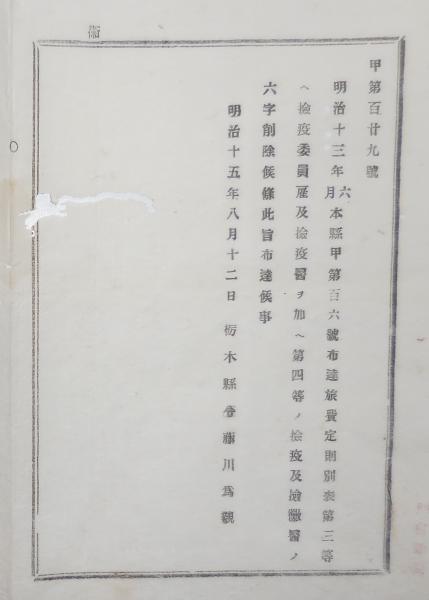 衞
甲第百廿九號
明治十三年六月本縣甲第百六號布達旅費定則別表第三等
ヘ檢疫委員雇及檢疫醫ヲ加ヘ第四等ノ檢疫及檢黴醫ノ
六字削除候條此旨布達候事
明治十五年八月十二日 栃木縣令藤川爲親